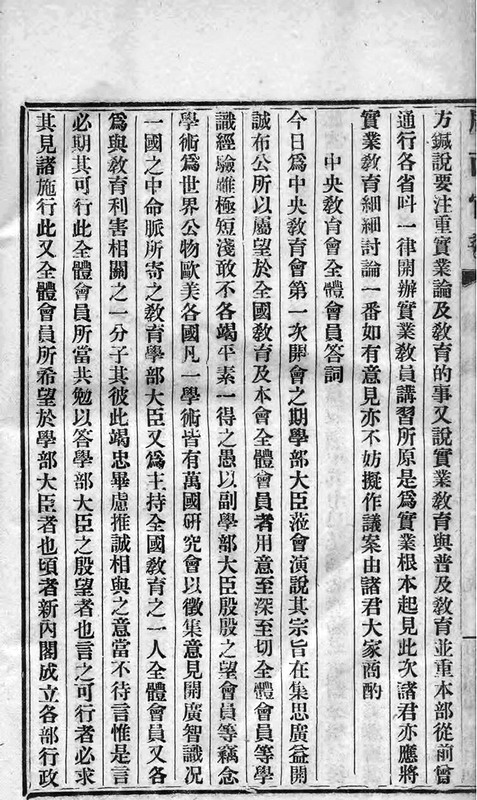 方鍼說要注重實業論及敎育的事又說實業敎育與普及敎育並重本部從前曾
通行各省呌一律開辦實業敎員講習所原是爲實業根本起見此次諸君亦應將
實業敎育細細討論一番如有意見亦不妨擬作議案由諸君大家商酌
中央敎育會全體會員答詞
今日爲中央敎育會第一次開會之期學部大臣蒞會演說其宗旨在集思廣益開
誠布公所以屬望於全國敎育及本會全體會員者用意至深至切全體會員等學
識經驗雖極短淺敢不各竭平素一得之愚以副學部大臣殷殷之望會員等竊念
學術爲世界公物歐美各國凡一學術皆有萬國研究會以徵集意見開廣智識况
一國之中命脈所寄之敎育學部大臣又爲主持全國敎育之一人全體會員又各
爲與敎育利害相關之一分子其彼此竭忠畢慮推誠相與之意當不待言惟是言
必期其可行此全體會員所當共勉以答學部大臣之殷望者也言之可行者必求
其見諸施行此又全體會員所希望於學部大臣者也頃者新內閣成立各部行政